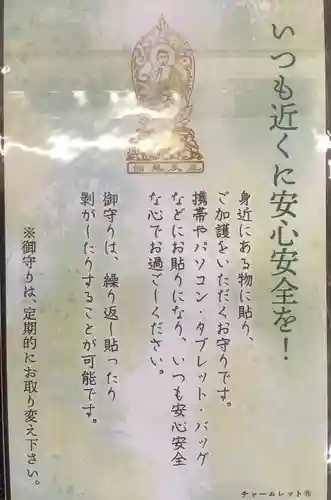 いつも近くに安心安全を!
身近にある物に貼り、
ご加護をいただくお守りです。
携帯やパソコン・タブレット・バッグ
などにお貼りになり、いつも安心安全
な心でお過ごしください。
御守りは、繰り返し貼ったり
剥がしたりすることが可能です。
※御守りは、定期的にお取り変え下さい。
チャームレット®